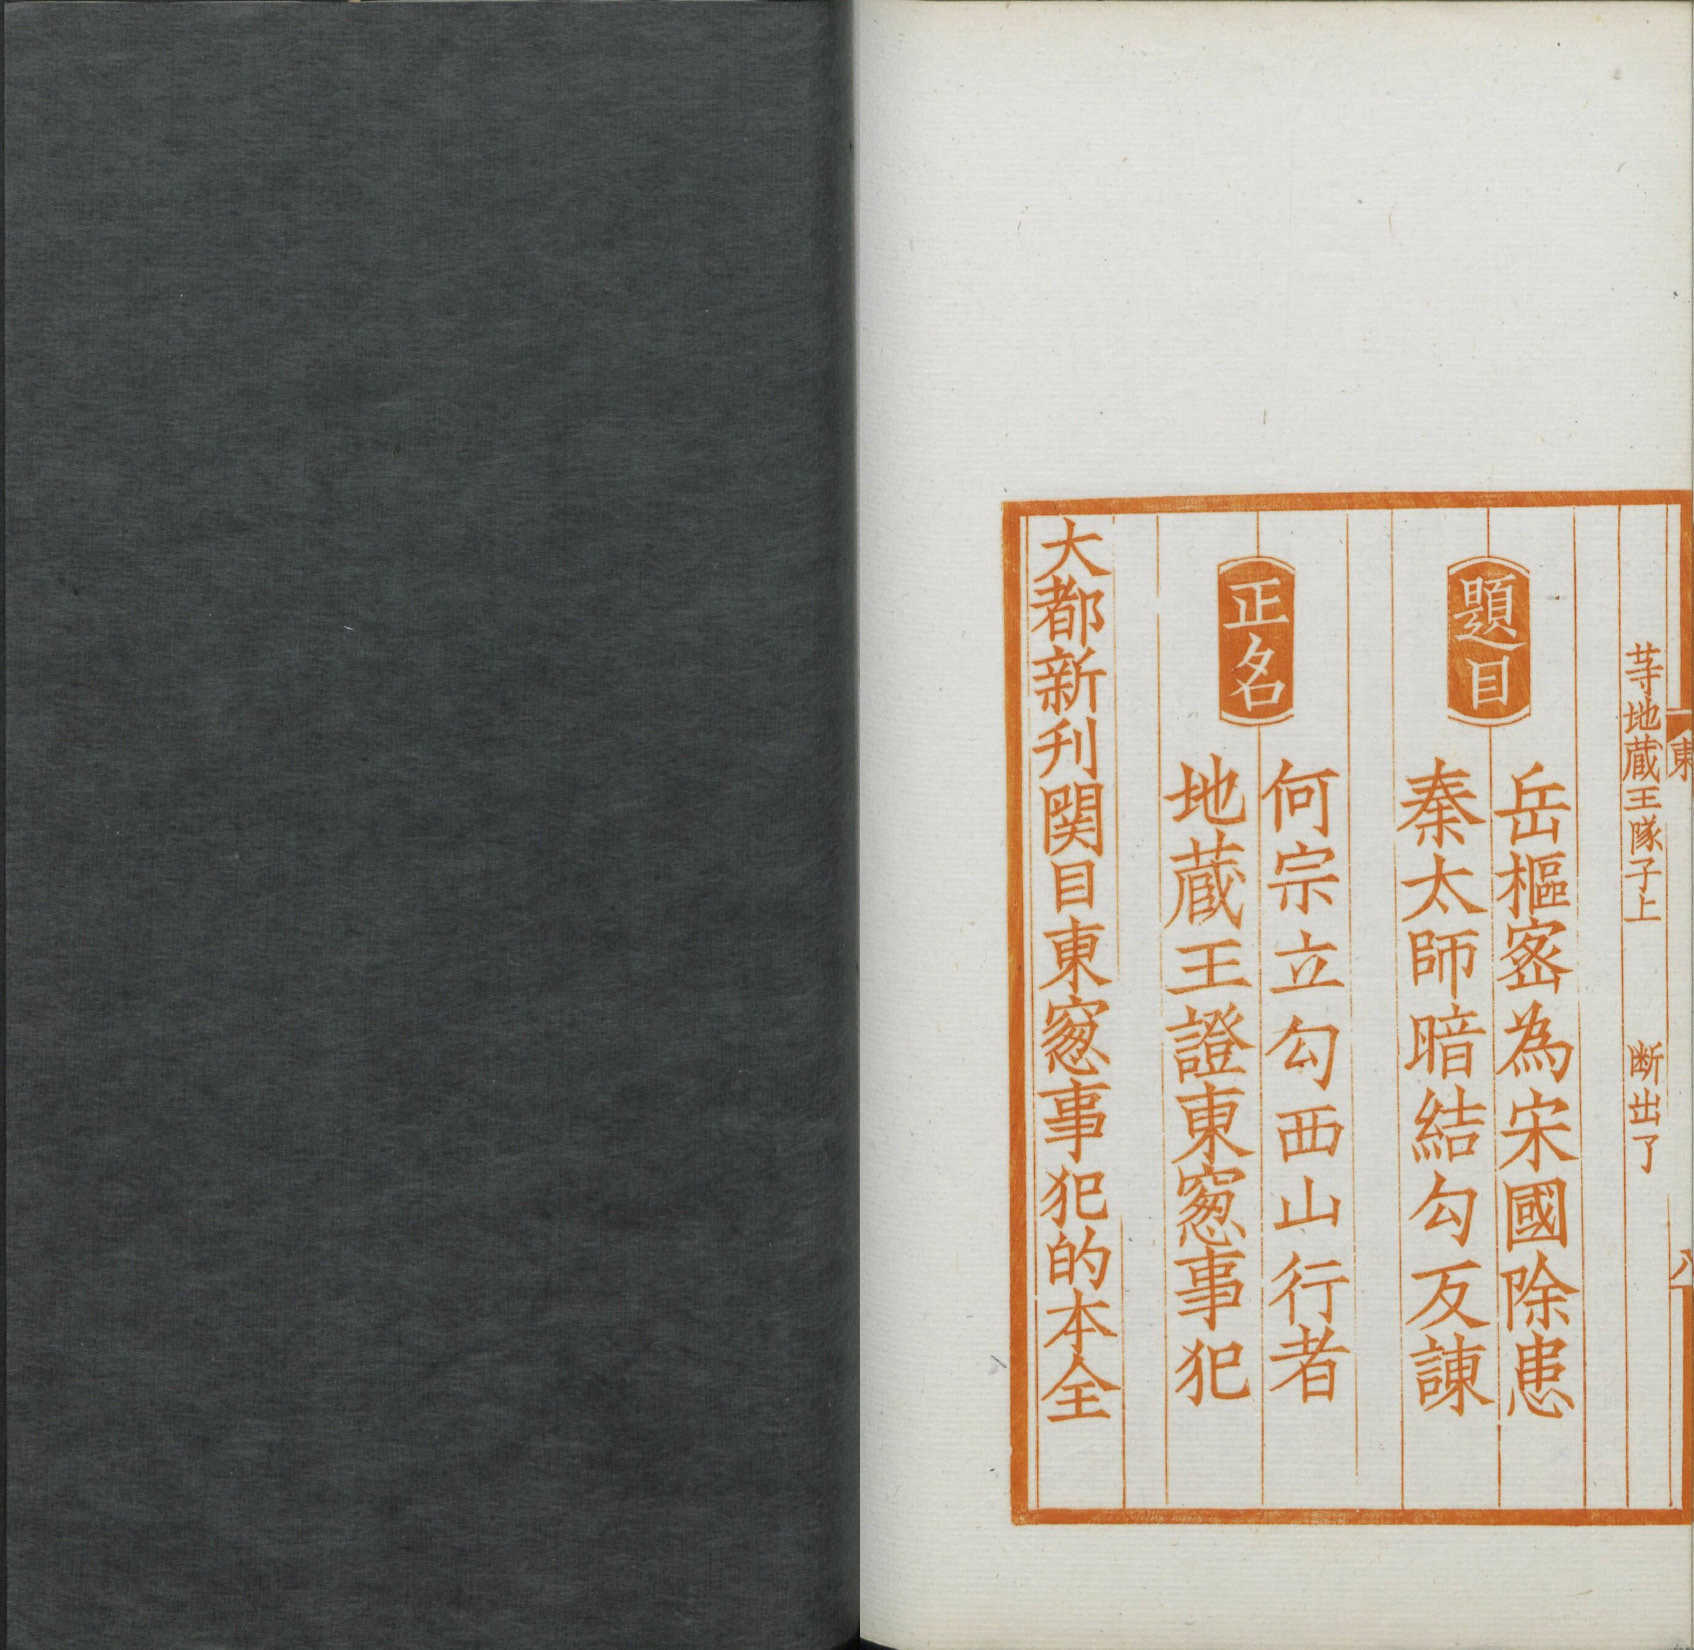 東
八
䓁地蔵王隊子上　断出了
題目
岳樞宻為宋國除患
秦太師暗結勾反諫
正名
何宗立勾西山行者
地蔵王證東窓事犯
大都新刊関目東窓事犯的本全